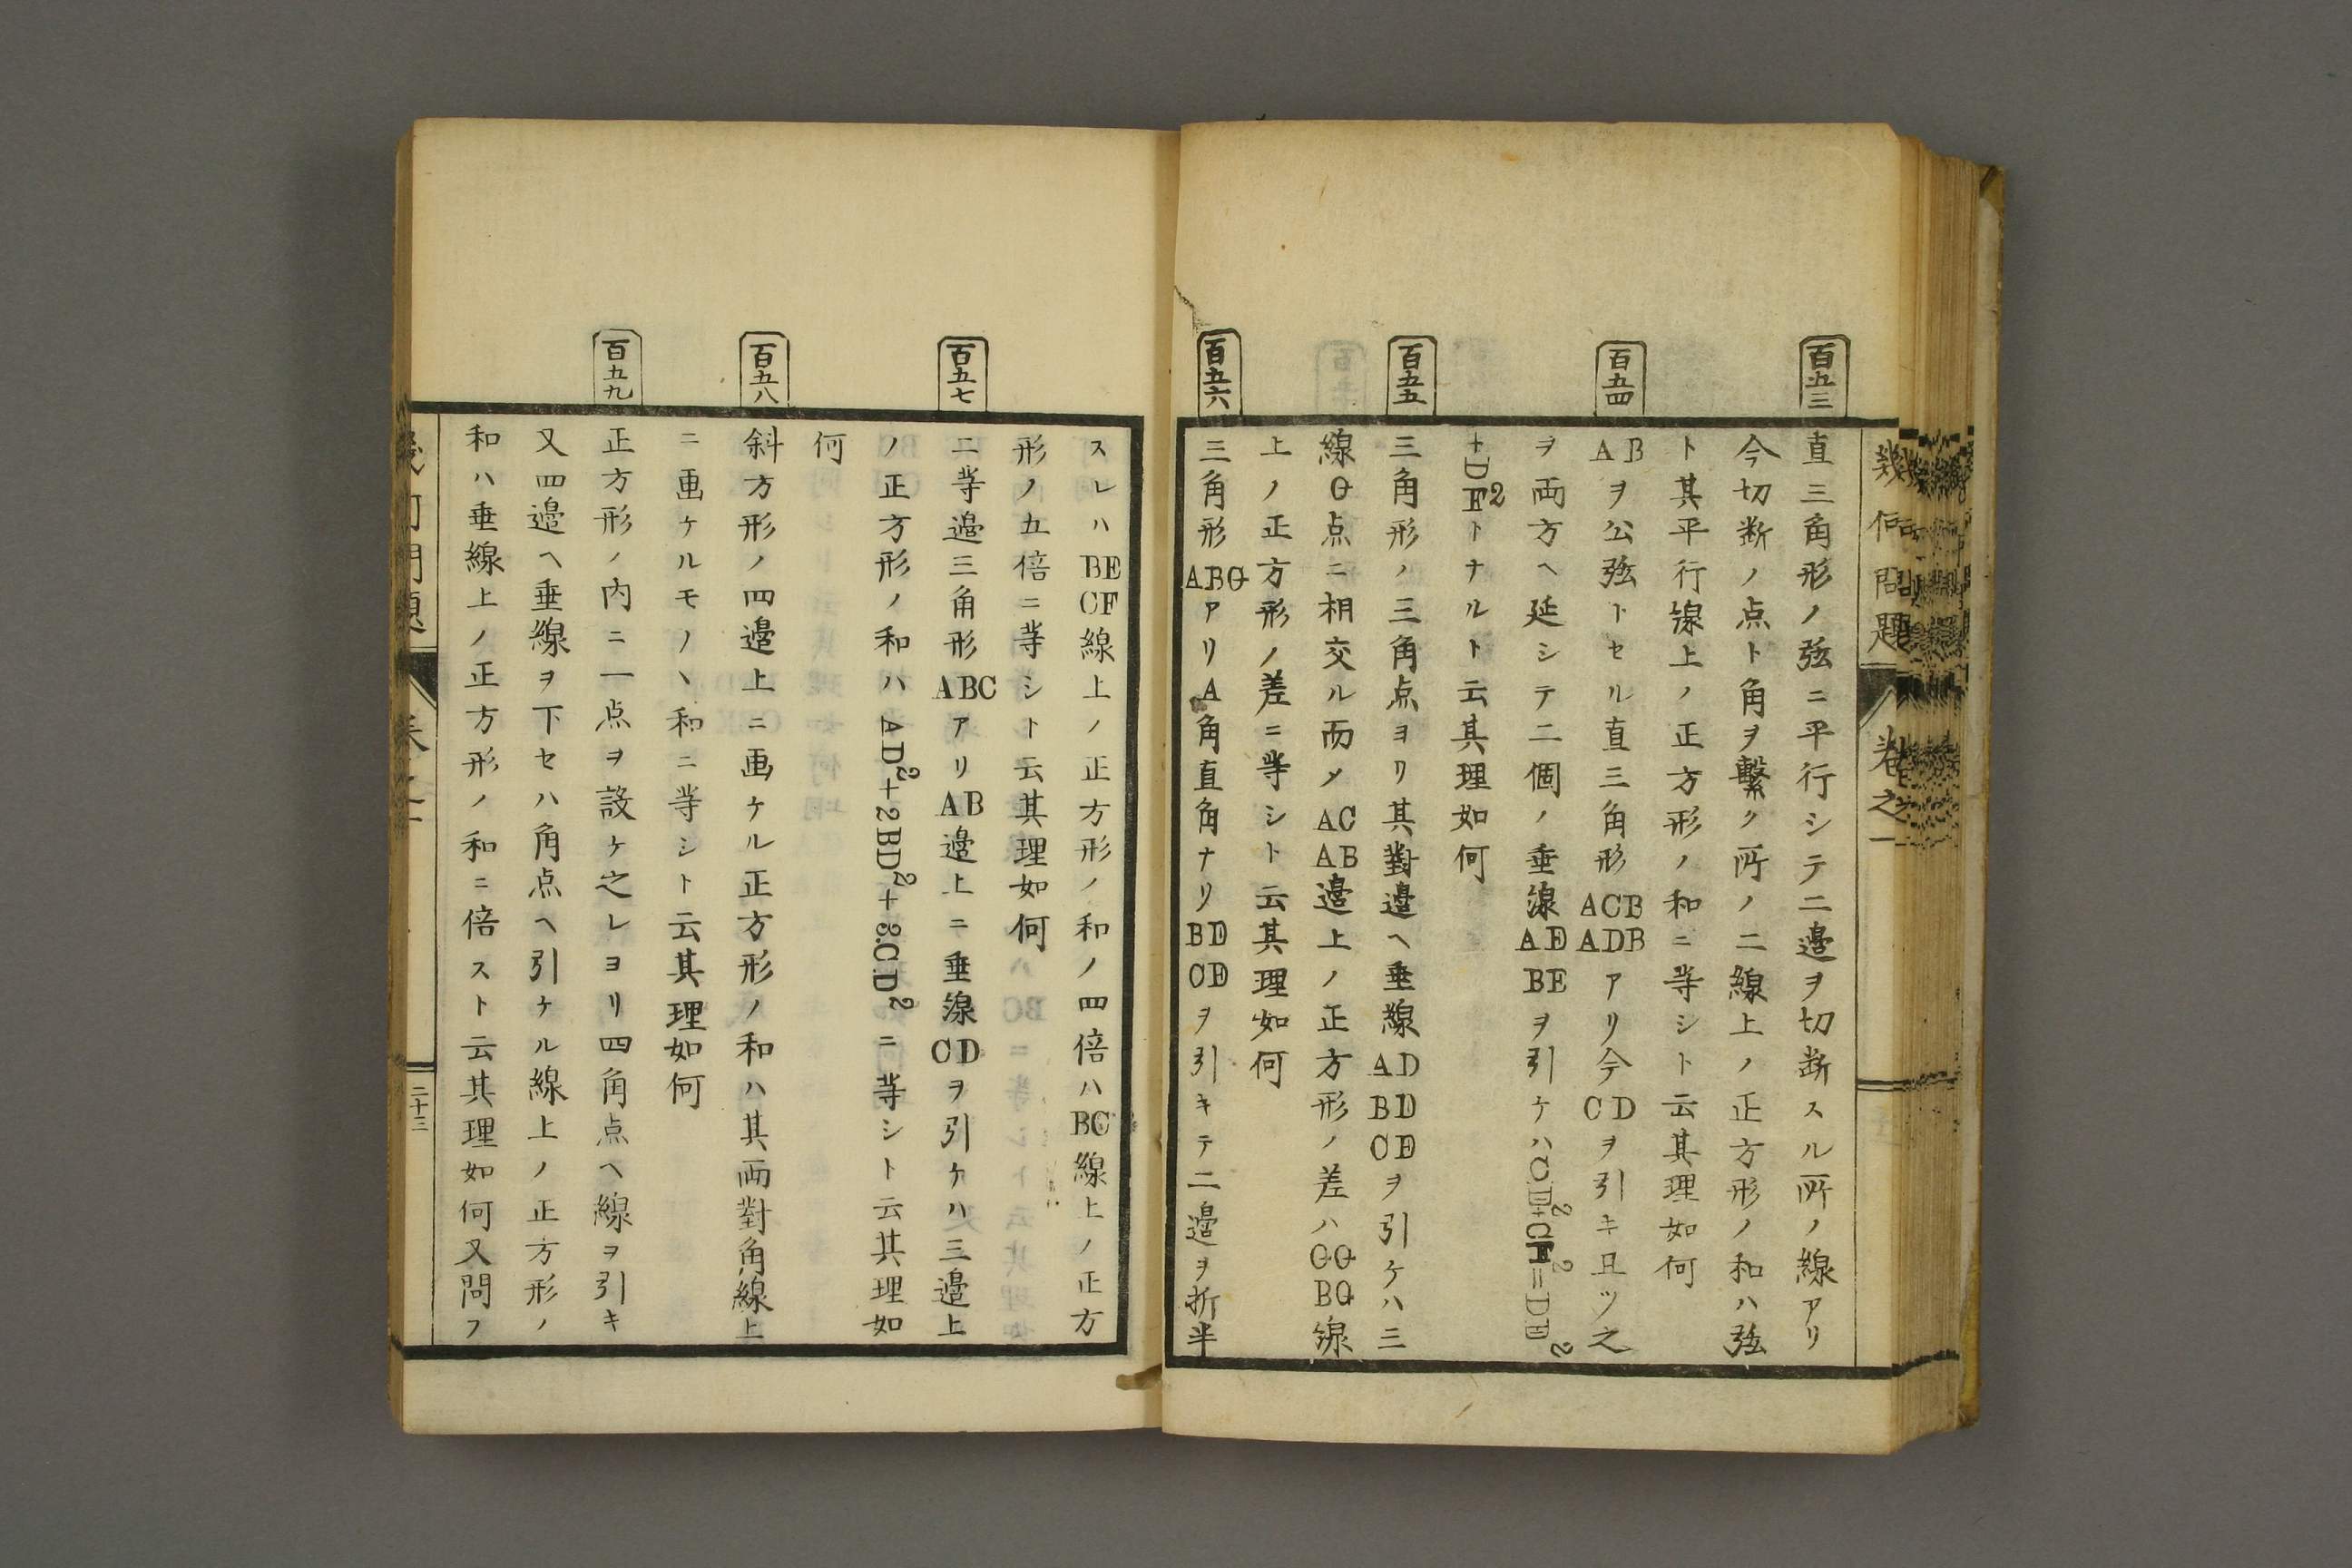 幾何問題
卷之一
百五三
直三角形ノ弦ニ平行シテ二邉ヲ切断スル所ノ線アリ
今切断ノ点ト角ヲ繋ク所ノ二線上ノ正方形ノ和ハ弦
ト其平行線上ノ正方形ノ和ニ等シト云其理如何
百五四
ABヲ公弦トセル直三角形ACB ADBアリ今CDヲ引キ且ツ之
ヲ両方ヘ延シテ二個ノ垂線AE BEヲ引ケハCD²+CF²=DE²
+DF²トナルト云其理如何
百五五
三角形ノ三角点ヨリ其對邉ヘ垂線AD BD CEヲ引ケハ三
線G点ニ相交ル而メAC AB邉上ノ正方形ノ差ハCG BG線
上ノ正方形ノ差ニ等シト云其理如何
百五六
三角形ABCアリA角直角ナリBD CEヲ引キテ二邉ヲ折半
スレハBE CF線上ノ正方形ノ和ノ四倍ハBC線上ノ正方
形ノ五倍ニ等シト云其理如何
百五七
二等邉三角形ABCアリAB邉上ニ垂線CDヲ引ケハ三邉上
ノ正方形ノ和ハAD²+2BD²+3.CD²ニ等シト云其理如
何
百五八
斜方形ノ四邉上ニ画ケル正方形ノ和ハ其両對角線上
ニ画ケルモノヽ和ニ等シト云其理如何
百五九
正方形ノ内ニ一点ヲ設ケ之レヨリ四角点ヘ線ヲ引キ
又四邉ヘ垂線ヲ下セハ角点ヘ引ケル線上ノ正方形ノ
和ハ垂線上ノ正方形ノ和ニ倍スト云其理如何又問フ
二十三